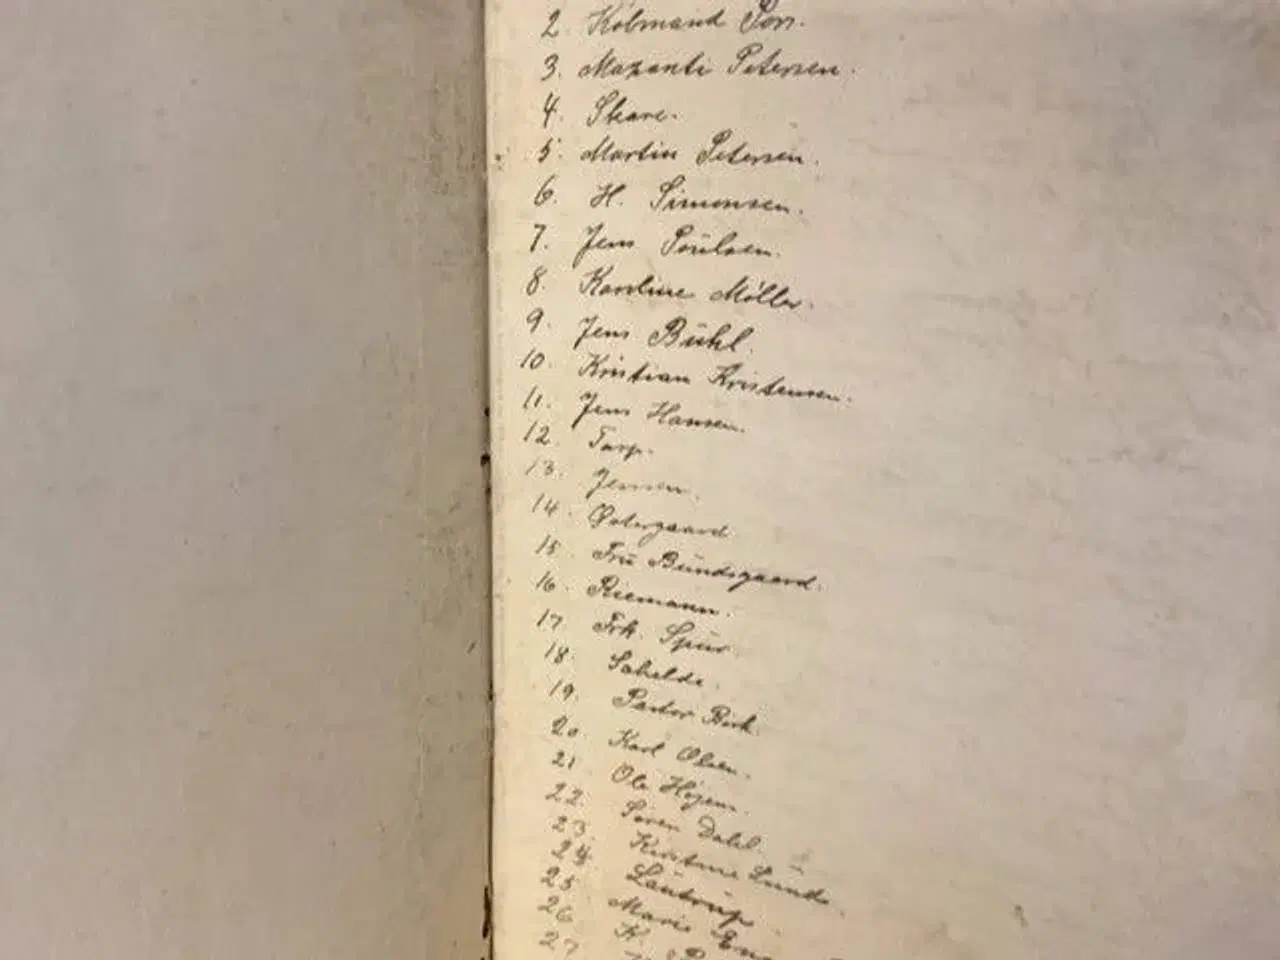 2. Kobmand Pors.
3. Mazanti Petersen.
4. Skare.
5. Martin Petersen.
6. H. Simonsen.
7. Jens Poŭlsen.
8. Karoline Möller.
9. Jens Bŭhl.
10. Kristian Kristensen.
11. Jens Hansen.
12. Tarp.
13. Jensen.
14. Østergaard
15. Frŭ Bŭndsgaard.
16. Riemann.
17. Frk. Spŭr.
18. Sahelde.
19. Pastor Birk.
20. Karl Olsen.
21. Ole Högens.
22. Sören Dahl.
23. Kirstine Lŭnde.
24. Laŭtrŭp
25. Marie
26. K.
27